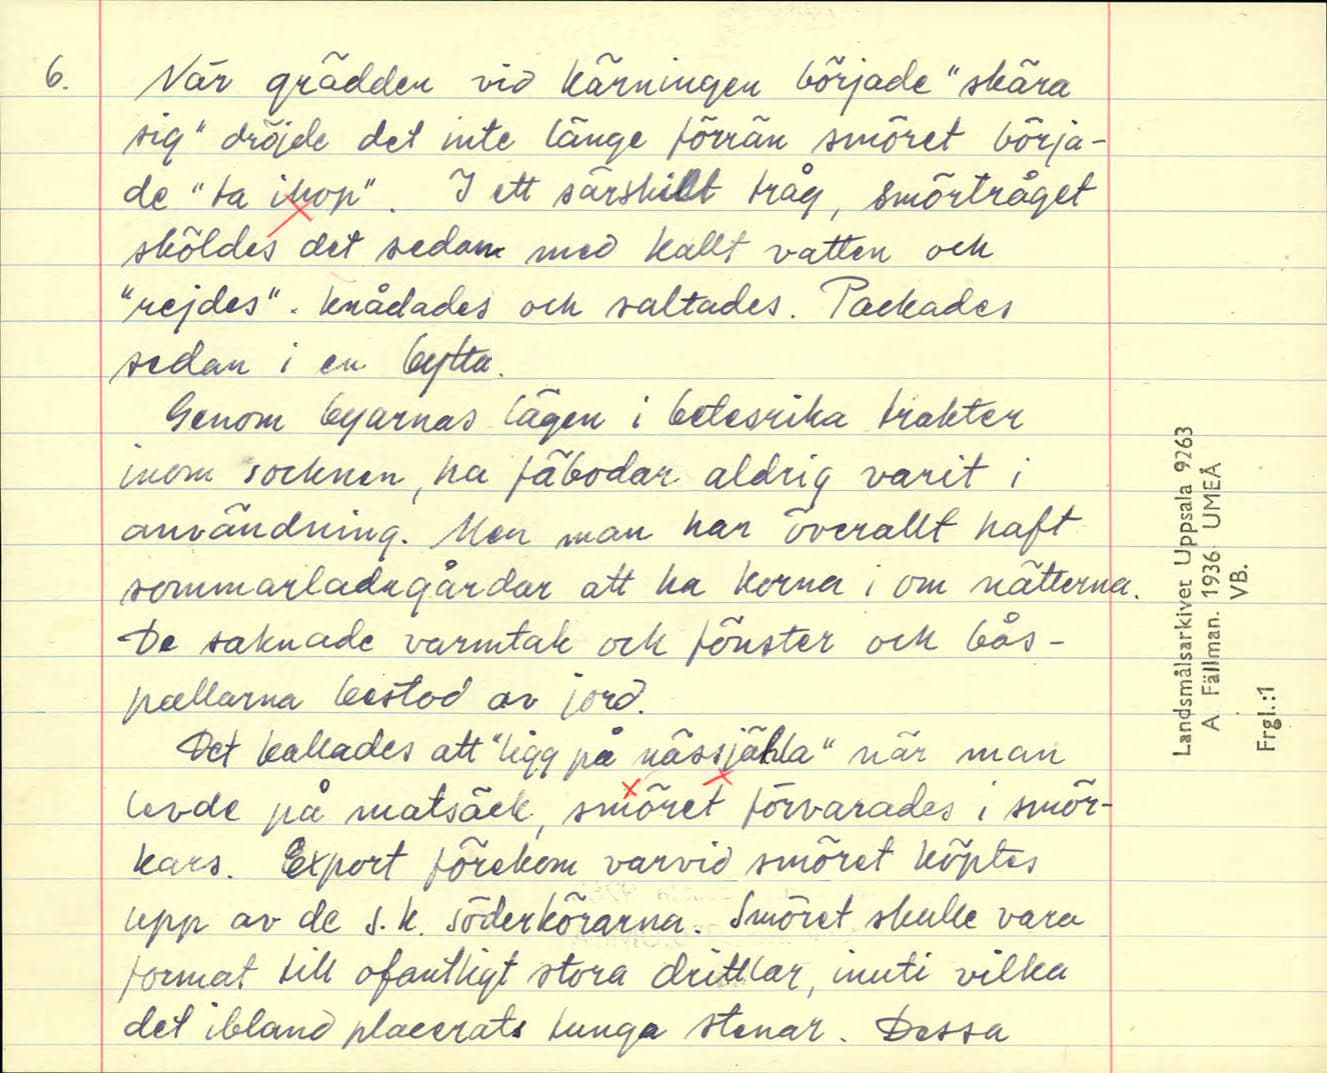 6.
När grädden vid kärningen började "skära
sig" dröjde det inte länge förrän smöret börja-
de "ta ihop". I ett särskilt tråg, smörtråget
sköldes det sedan med kallt vatten och
"rejdes". knådades och saltades. Packades
sedan i en bytta.
Genom byarnas lägen i betesrika trakter
inom socknen, ha fäbodar aldrig varit i
användning. Men man har överallt haft
sommarladugårdar att ha korna i om nätterna.
De saknade varmtak och fönster och bås-
pallarna bestod av jord.
Det kallades att "ligg på nässjäkla" när man
levde på matsäck, smöret förvarades i smör-
kars. Export förekom varvid smöret köptes
upp av de s.k. söderkörarna. Smöret skulle vara
format till ofantligt stora drittlar, inuti vilka
det ibland placerats tunga stenar. Dessa
Landsmålsarkivet Uppsala 9263
A Fällman. 1936. UMEÅ
VB.
Frgl.:1